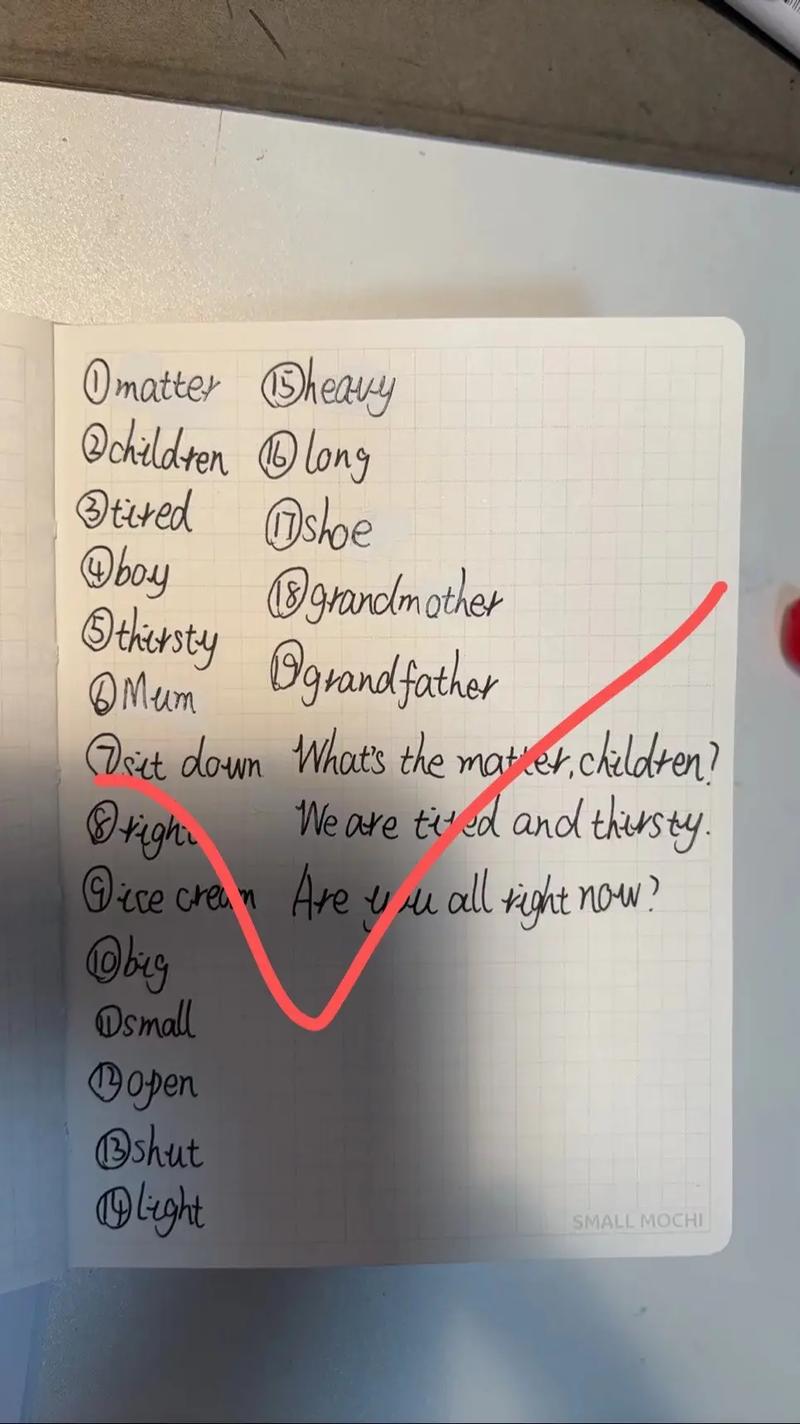 ①matter
②children
③tired
④boy
⑤thirsty
⑥Mum
⑦sit down
⑧right
⑨ice cream
⑩big
⑪small
⑫open
⑬shut
⑭light
⑮heavy
⑯long
⑰shoe
⑱grandmother
⑲grandfather
What's the matter,children?
We are tired and thirsty.
Are you all right now?
SMALL MOCHI